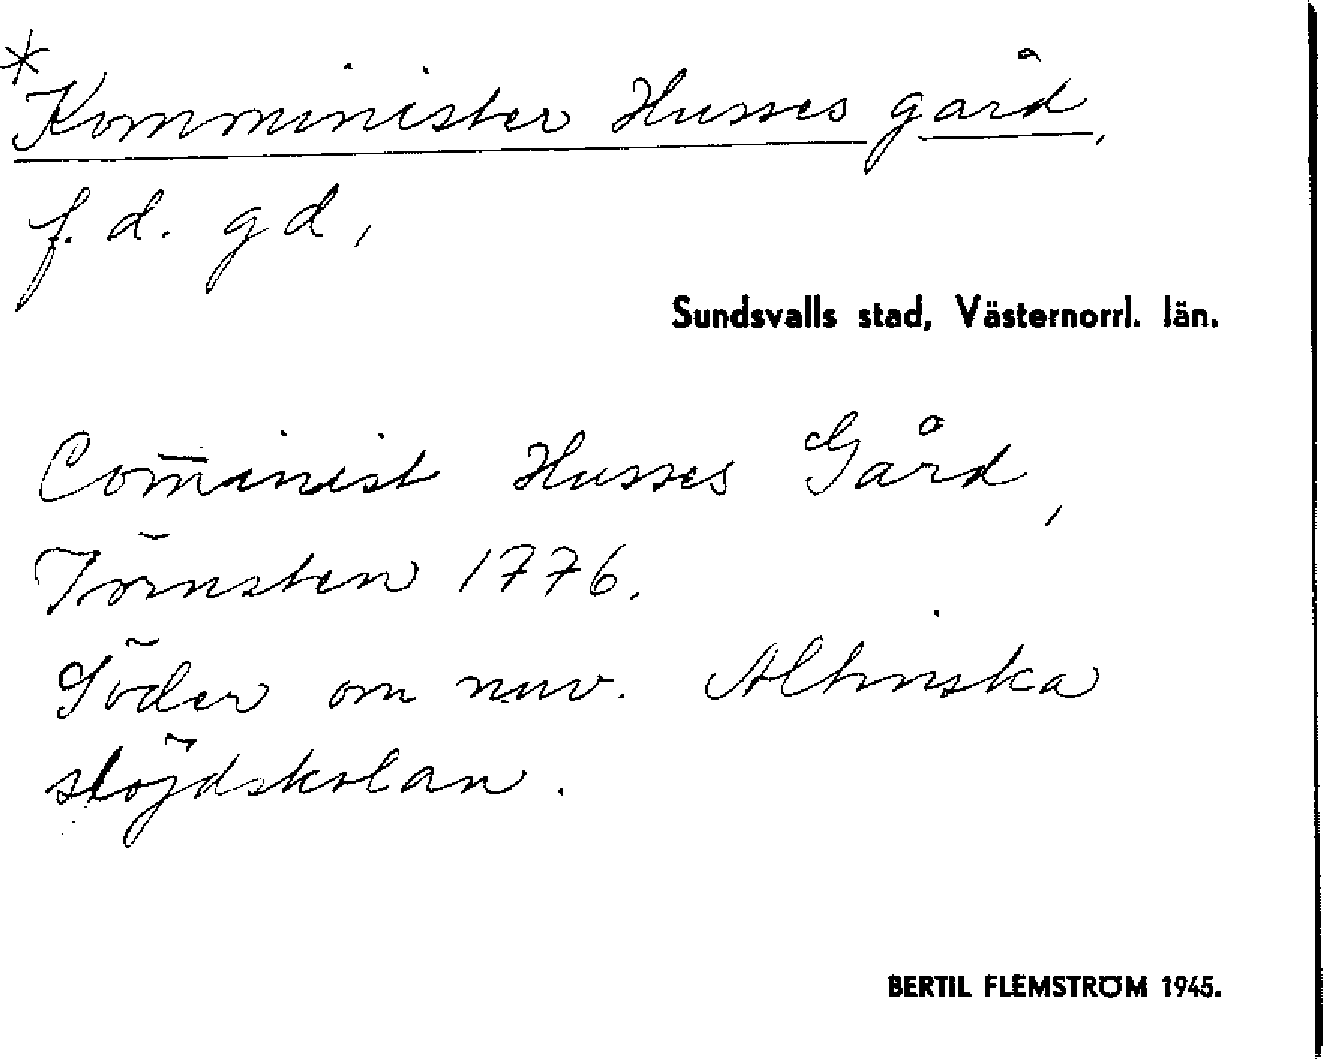 *Komminister Husses gård,
f. d. gd,
Sundsvalls stad, Västernorrl. län.
Com̅inist Husses Gård,
Törnsten 1776.
Söder om nuv. Alhinska
slöjdskolan.
BERTIL FLEMSTRÖM 1945.